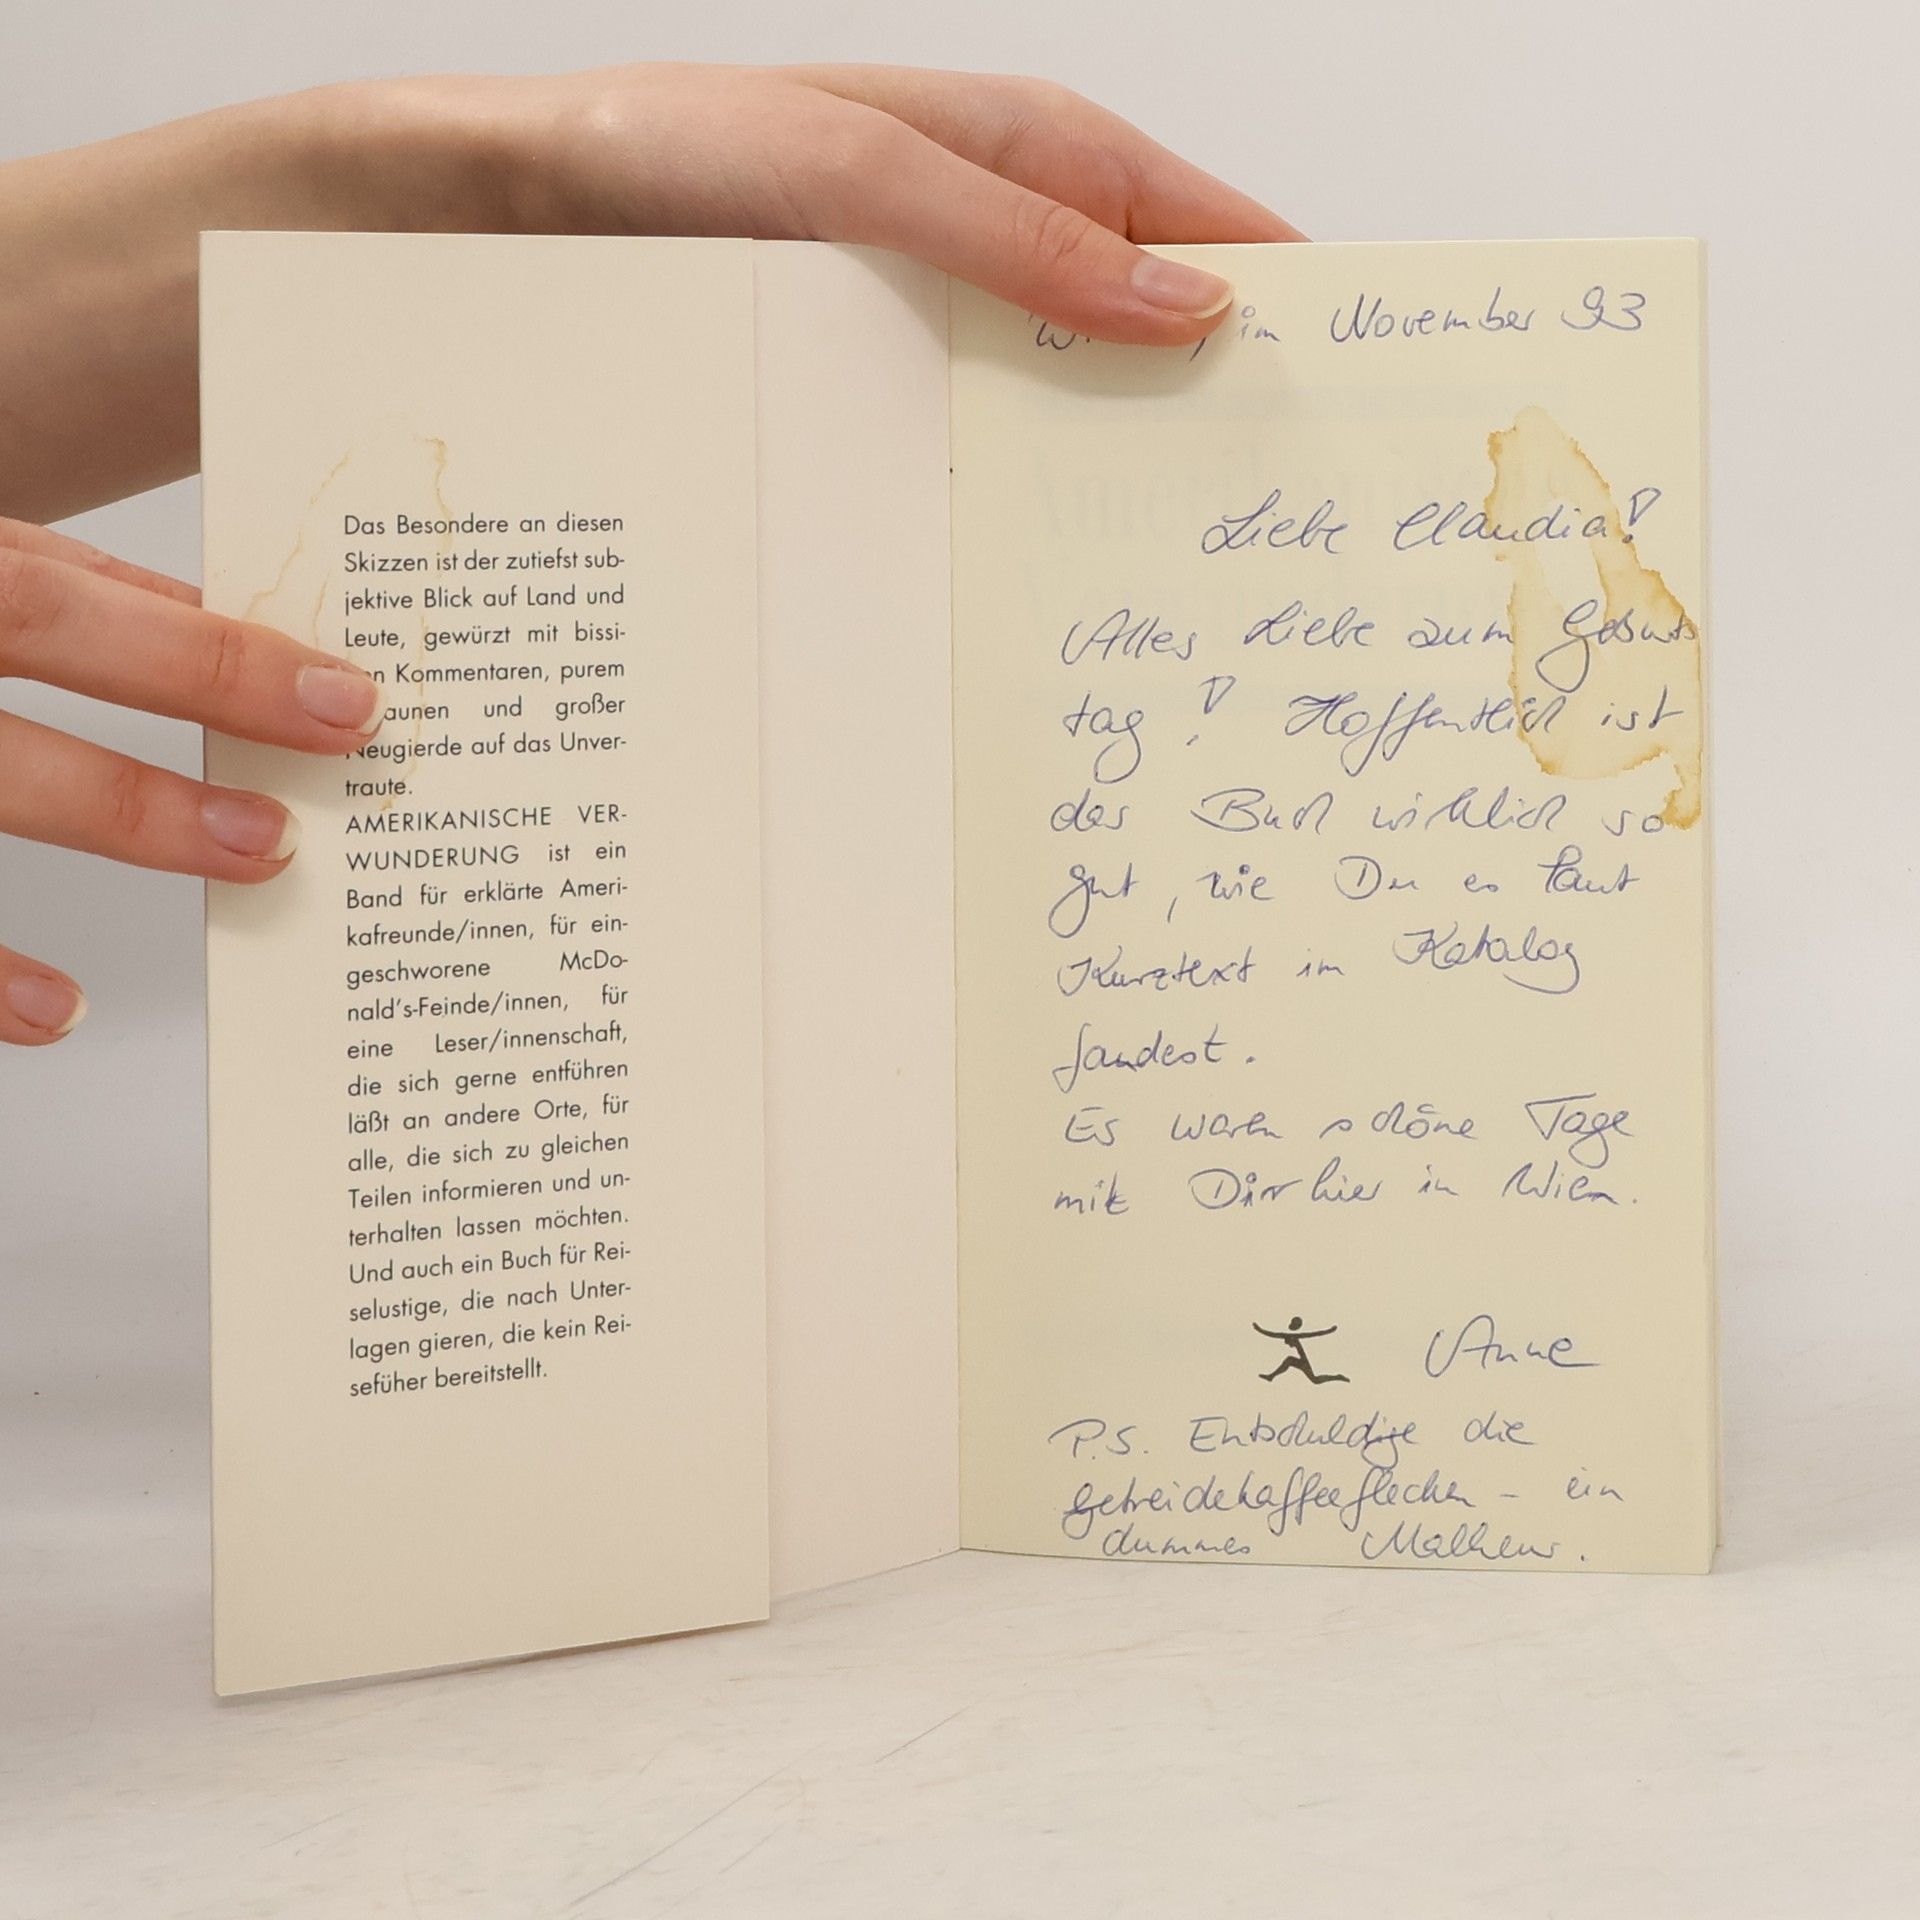 Das Besondere an diesen
Skizzen ist der zutiefst sub-
jektive Blick auf Land und
Leute, gewürzt mit bissi-
Kommentaren, purem
und großer
Neugierde auf das Unver-
traute.
AMERIKANISCHE VER-
WUNDERUNG ist ein
Band für erklärte Ameri-
kafreunde/innen, für ein-
geschworene McDo-
nald's-Feinde/innen, für
eine Leser/innenschaft,
die sich gerne entführen
läßt an andere Orte, für
alle, die sich zu gleichen
Teilen informieren und un-
terhalten lassen möchten.
Und auch ein Buch für Rei-
selustige, die nach Unter-
lagen gieren, die kein Rei-
sefüher bereitstellt.
im November 93
Liebe Claudia!
Alles Liebe zum Geburts
tag! Hoffentlich ist
das Buch wirklich so
gut, wie Du es laut
Kurztext im Katalog
fandest.
Es waren schöne Tage
mit Dir hier in Wien.
Anne
P.S. Entschuldige die
Getreidekaffeeflecken - ein
dummes Malheur.